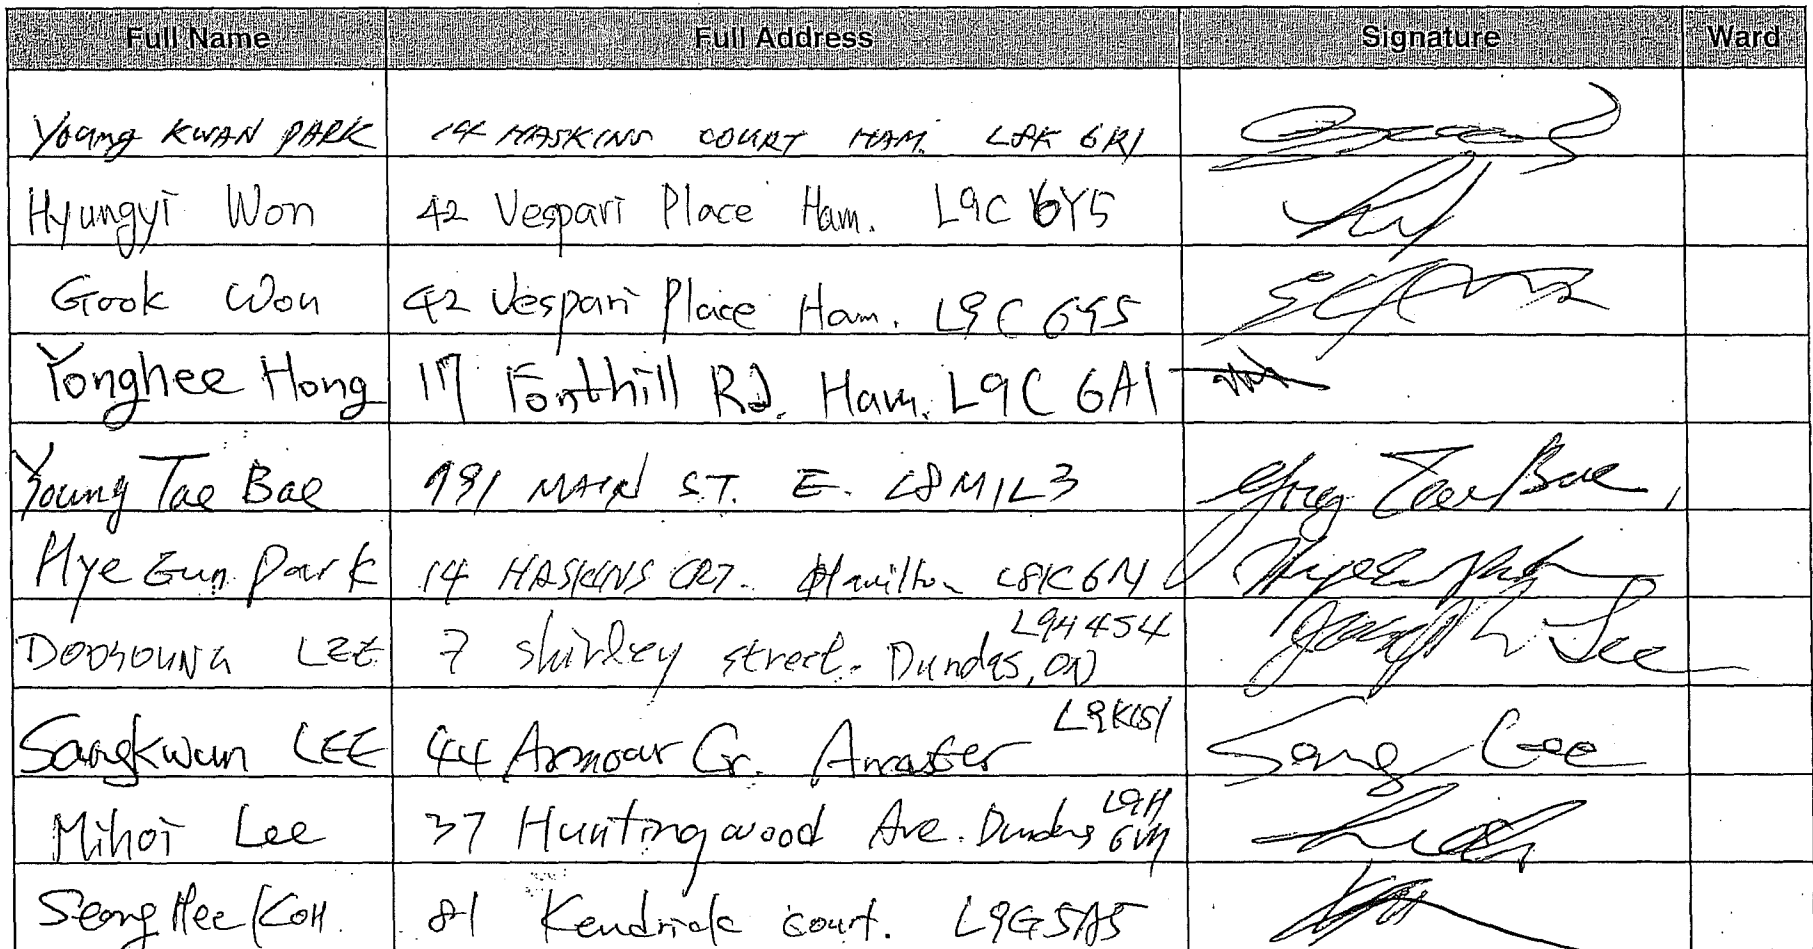 Full Name Full Address Signature Ward
Young KWAN PARK 14 HASKINS COURT HAM. L8K 6R1
Hyungyi Won 42 Vespari Place Ham. L9C 6Y5
Gook Won 42 Vespari Place Ham. L9C 6Y5
Yonghee Hong 17 Fonthill Rd. Ham. L9C 6A1
Young Tae Bae 991 MAIN ST. E. L8M1L3 Young Tae Bae
Hye Eun Park 14 HASKINS CRT. Hamilton
DOOYOUNG LEE 7 shirley street. Dundas, ON L9H4S4 Joseph Lee
Sangkwun LEE 44 Armour Cr. Sang Lee
Mihoi Lee 37 Huntingwood Ave. Dundas L9H
Seong Hee KOH. 81 Kendrick court. L9G5A5